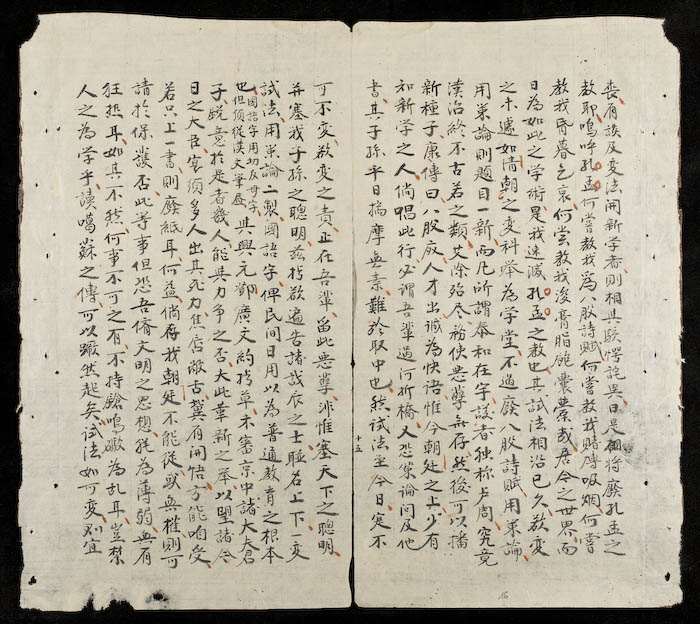 喪有談及变法開新学者則相與駭愕詫異曰是欲將廢孔孟之
教耶嗚呼孔孟何嘗教我為八股詩賦何嘗教我賭博吸烟何嘗
教我昏暮乞哀何嘗教我浚膏脂飽囊橐哉居今之世界而
日為如此之学術是我速滅孔孟之教也其試法相沿已久欲变
之不遽如清朝之变科举為学堂不過廢八股詩賦用策論
用策論則題目一新而凡所謂奉和在字議者独称占周究竟
漢治終不古若之類艾除殆尽務使悪孽無存然後可以播
新種子康傳曰八股廢人才出誠為快語惟今朝廷之上少有
和新学之人倘唱此行必謂吾輩過河折橋又恐策論問及他
書其子孫平日揣摩無素難於取中也然試法至今日寔不
十五
可不变欲变之責正在吾輩留此悪孽非惟塞天下之聰明
并塞我子孫之聰明玆我欲遍告諸識辰之士联名上下一变
試法用策論二製国語字俾民间日用以為普通教育之根本
也国語字用切反母字但須從漢文筆畫其與元鄧廣文約指草木審京中諸大夫君
子銳意於是者幾人能與力争之否大此革新之举以望諸今
日之大臣寔須多人出其死力焦唇敝舌冀有開悟方能咱受
若只上一書則廢紙耳何益倘存我朝廷不能從或無權則可
請於保護否此等事但恐吾儕文明之思想猶為薄弱無有
狂热耳如其不然何事不可之有不持鎗鳴礮為乱耳豈禁
人之為学乎讀噶蘇之傳可以蹶然起矣試法如可变則宜
16